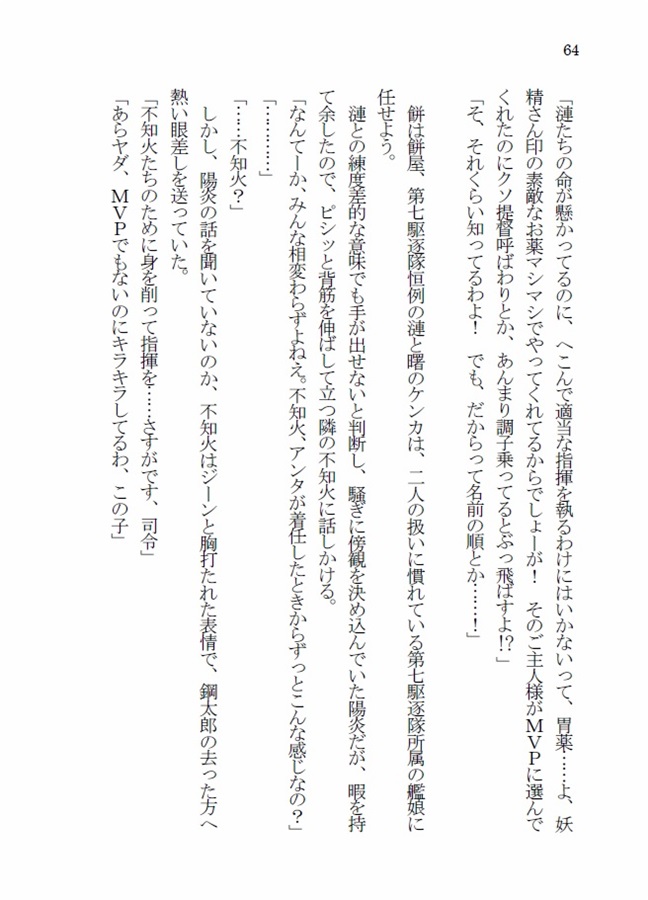 64
「漣たちの命が懸かってるのに、へこんで適当な指揮を執るわけにはいかないって、胃薬……よ、妖
精さん印の素敵なお薬マシマシでやってくれてるからでしょーが！　そのご主人様がＭＶＰに選んで
くれたのにクソ提督呼ばわりとか、あんまり調子乗ってるとぶっ飛ばすよ!?」
「そ、それくらい知ってるわよ！　でも、だからって名前の順とか……！」
餅は餅屋、第七駆逐隊恒例の漣と曙のケンカは、二人の扱いに慣れている第七駆逐隊所属の艦娘に
任せよう。
漣との練度差的な意味でも手が出せないと判断し、騒ぎに傍観を決め込んでいた陽炎だが、暇を持
て余したので、ピシッと背筋を伸ばして立つ隣の不知火に話しかける。
「なんてーか、みんな相変わらずよねえ。不知火、アンタが着任したときからずっとこんな感じなの？」
「…………」
「……不知火？」
しかし、陽炎の話を聞いていないのか、不知火はジーンと胸打たれた表情で、鋼太郎の去った方へ
熱い眼差しを送っていた。
「不知火たちのために身を削って指揮を……さすがです、司令」
「あらヤダ、ＭＶＰでもないのにキラキラしてるわ、この子」